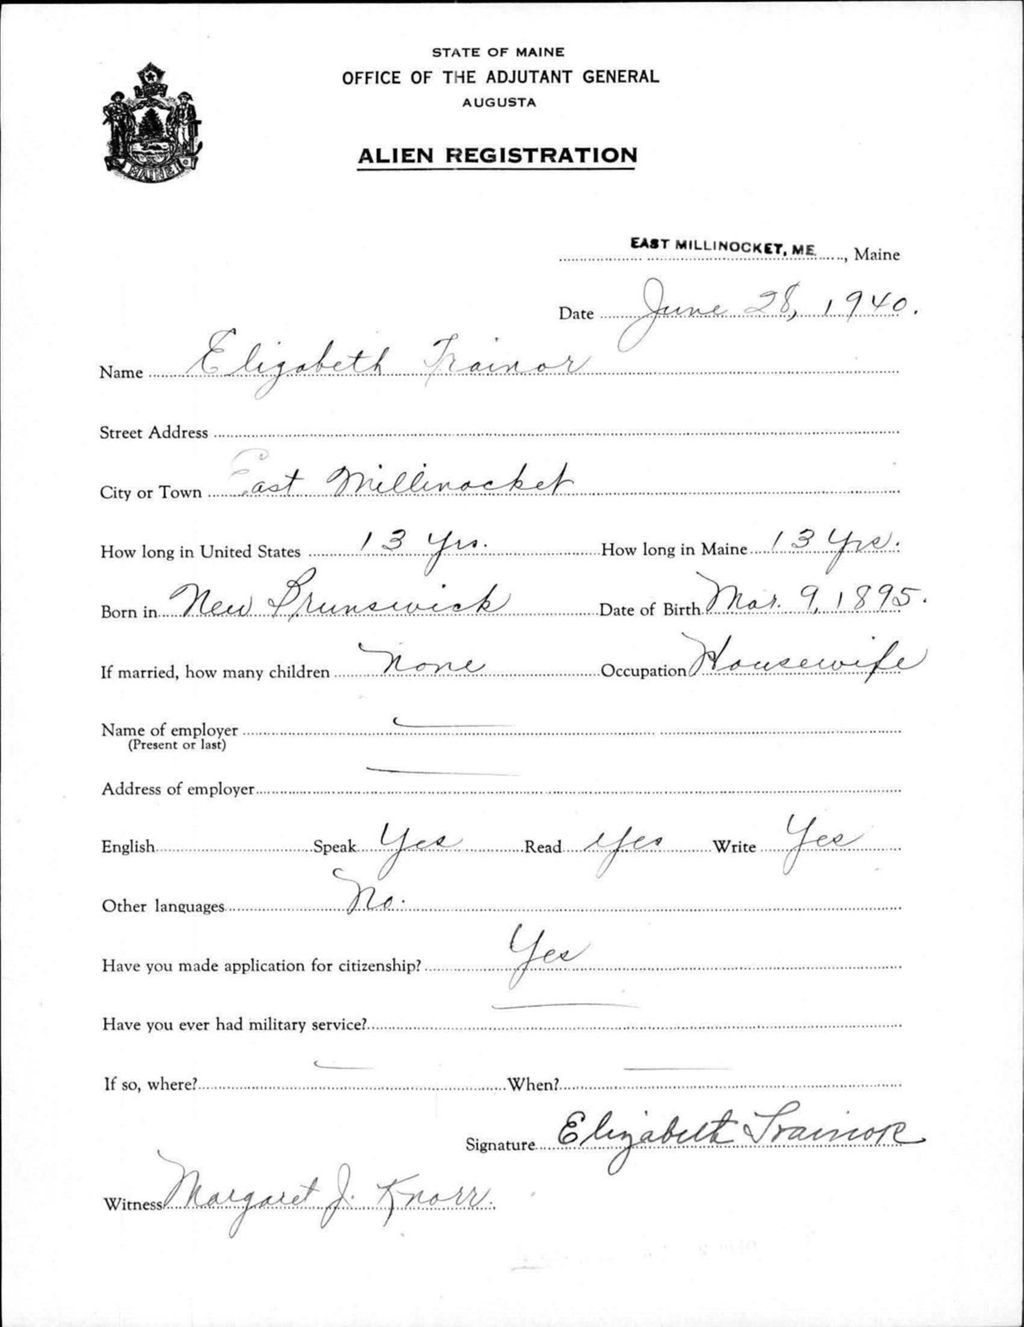 STATE OF MAINE
OFFICE OF THE ADJUTANT GENERAL
AUGUSTA
ALIEN REGISTRATION
MAINE
EAST MILLINOCKET, ME., Maine
Date June 28, 1940.
Name Elizabeth Trainor
Street Address
City or Town East Millinocket
How long in United States 13 Yrs. How long in Maine 13 Yrs.
Born in New Brunswick Date of Birth Mar. 9, 1895.
If married, how many children None Occupation Housewife
Name of employer
(Present or last)
Address of employer
English Speak Yes Read Yes Write Yes
Other languages No.
Have you made application for citizenship? Yes
Have you ever had military service?
If so, where? When?
Signature Elizabeth Trainor
Witness Margaret J. Knorr.